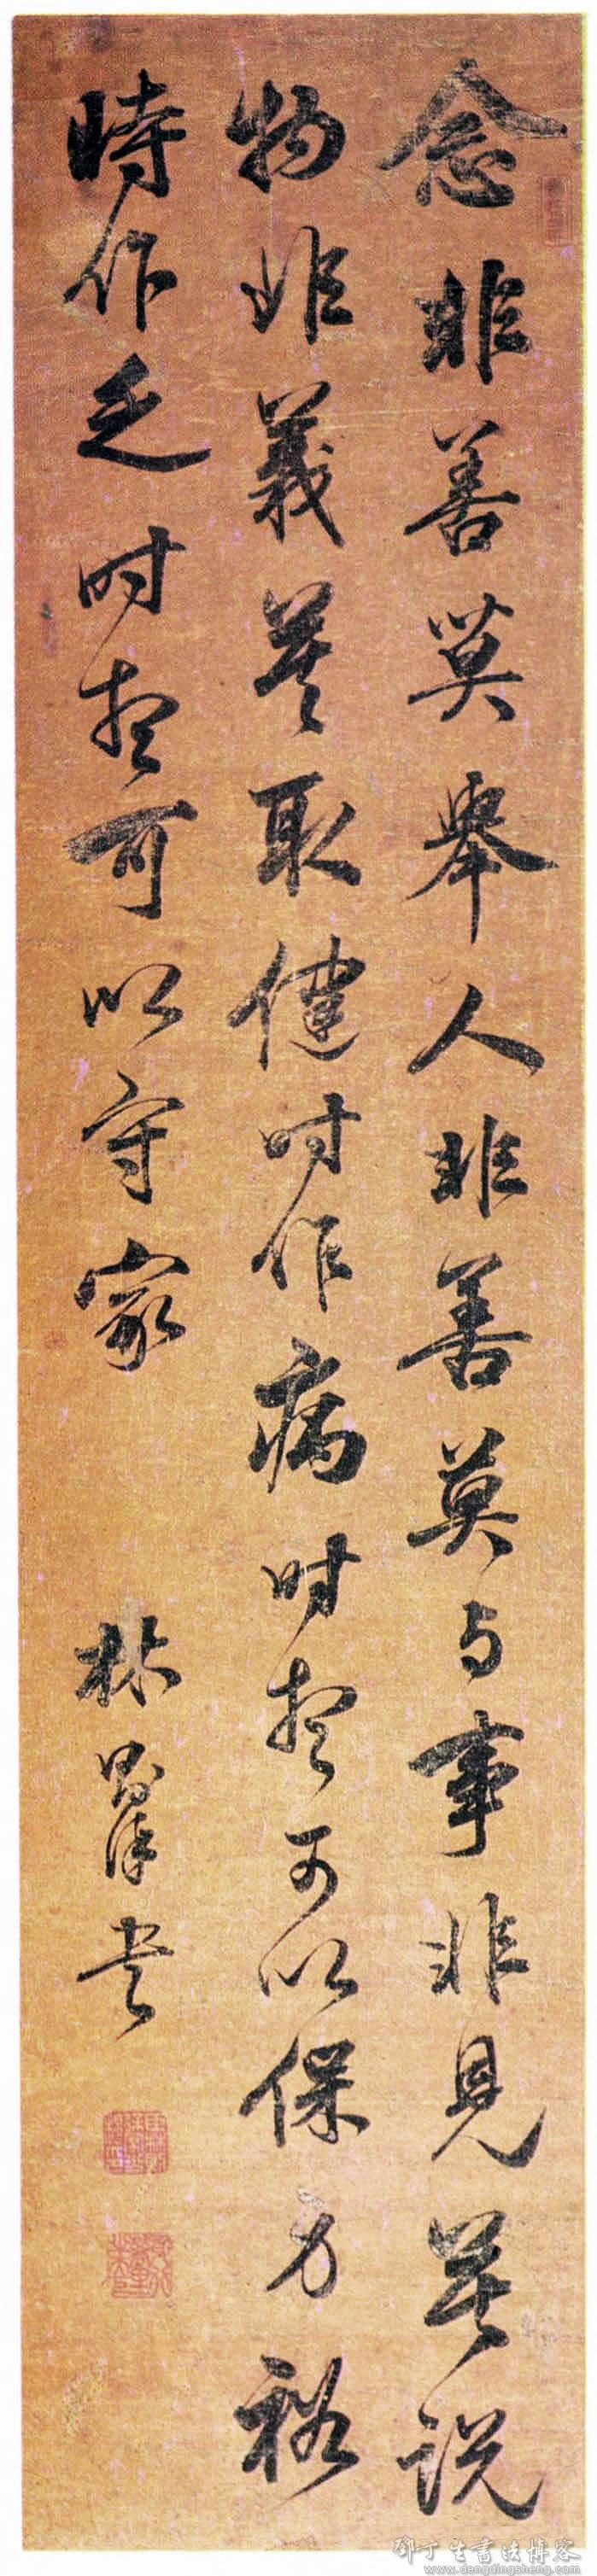 念非善莫舉人非善莫与事非見莫説
物非義莫取健时作病时想可以保身裕
時作乏时想可以守家
林书
邓丁生书法博客
www.dengdingsheng.com